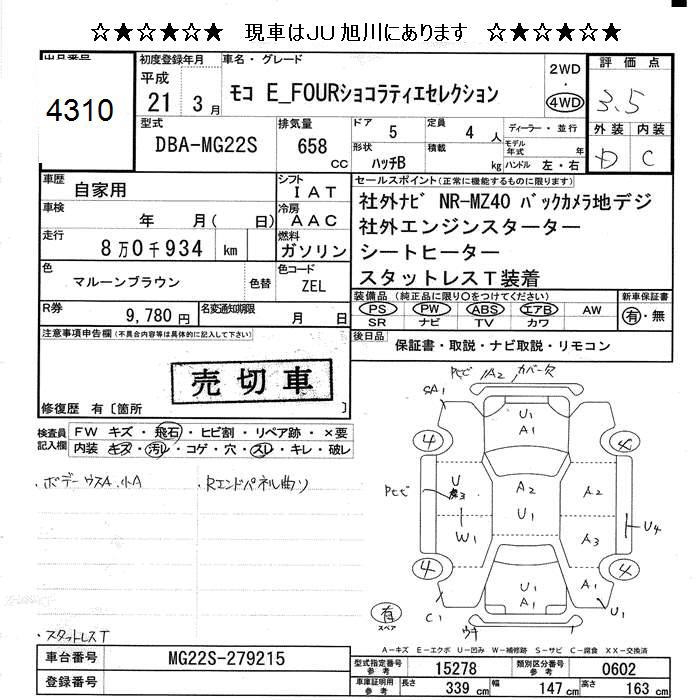 ☆★☆★☆★☆ 現車はJU旭川にあります ☆★☆★☆★☆
出品番号
4310
初度登録年月
平成
21 3月
車名・グレード
モコ E_FOURショコラティエセレクション
2WD
・
4WD
評価点
3.5
外装 内装
D C
型式
DBA-MG22S
排気量
658 CC
ドア 5
定員 4 人
形状 ハッチB
積載 kg
ディーラー・並行
モデル年式 年
ハンドル 左・右
車歴 自家用
シフト IAT
車検 年 月( 日)
冷房 AAC
走行 8万0千934 km
燃料 ガソリン
色 マルーンブラウン
色替
色コード ZEL
R券 9,780円
名変通知期限 月 日
セールスポイント(正常に機能するものに限ります)
社外ナビ NR-MZ40 バックカメラ地デジ
社外エンジンスターター
シートヒーター
スタットレスT装着
装備品 (純正品に限り○をつけてください)
PS PW ABS エアB AW
SR ナビ TV カワ
新車保証書
有・無
後日品 保証書・取説・ナビ取説・リモコン
注意事項申告欄(不具合内容等は具体的に記入して下さい)
売切車
修復歴 有[箇所 ]
検査員記入欄
FW キズ・飛石・ヒビ割・リペア跡・×要
内装 キズ・汚レ・コゲ・穴・スレ・キレ・破レ
・ボデーウスA、小A
・Rエンドパネル曲り
・スタットレスT
PCビ 1A2 カバー欠
SA1
U1
A1
4
4
PCビ
U
3
W1
A2
U1
A2
A3
U4
4
4
U1
A1
A1
C1
U1
有
スペア
ウキ
A－キズ E－エクボ U－凹み W－補修跡 S－サビ C－腐食 XX－交換済
車台番号 MG22S-279215
登録番号
型式指定番号 参考 15278
類別区分番号 参考 0602
車庫証明用 参考
長さ 339 cm
幅 147 cm
高さ 163 cm